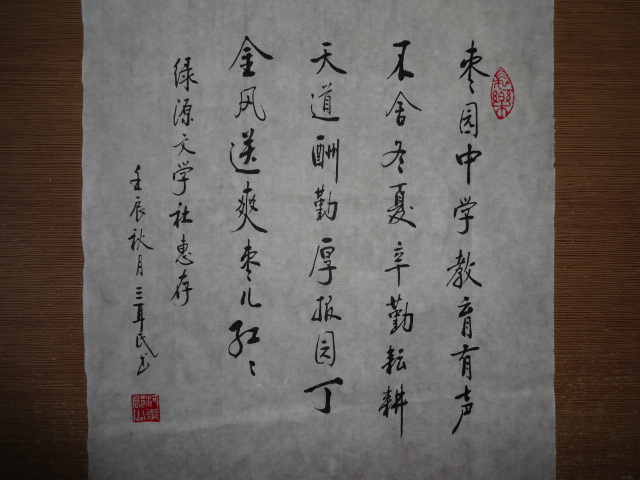 枣园中学教育有声
不舍冬夏辛勤耘耕
天道酬勤厚报园丁
金风送爽枣儿红〻
绿源文学社惠存
壬辰秋月三耳氏书